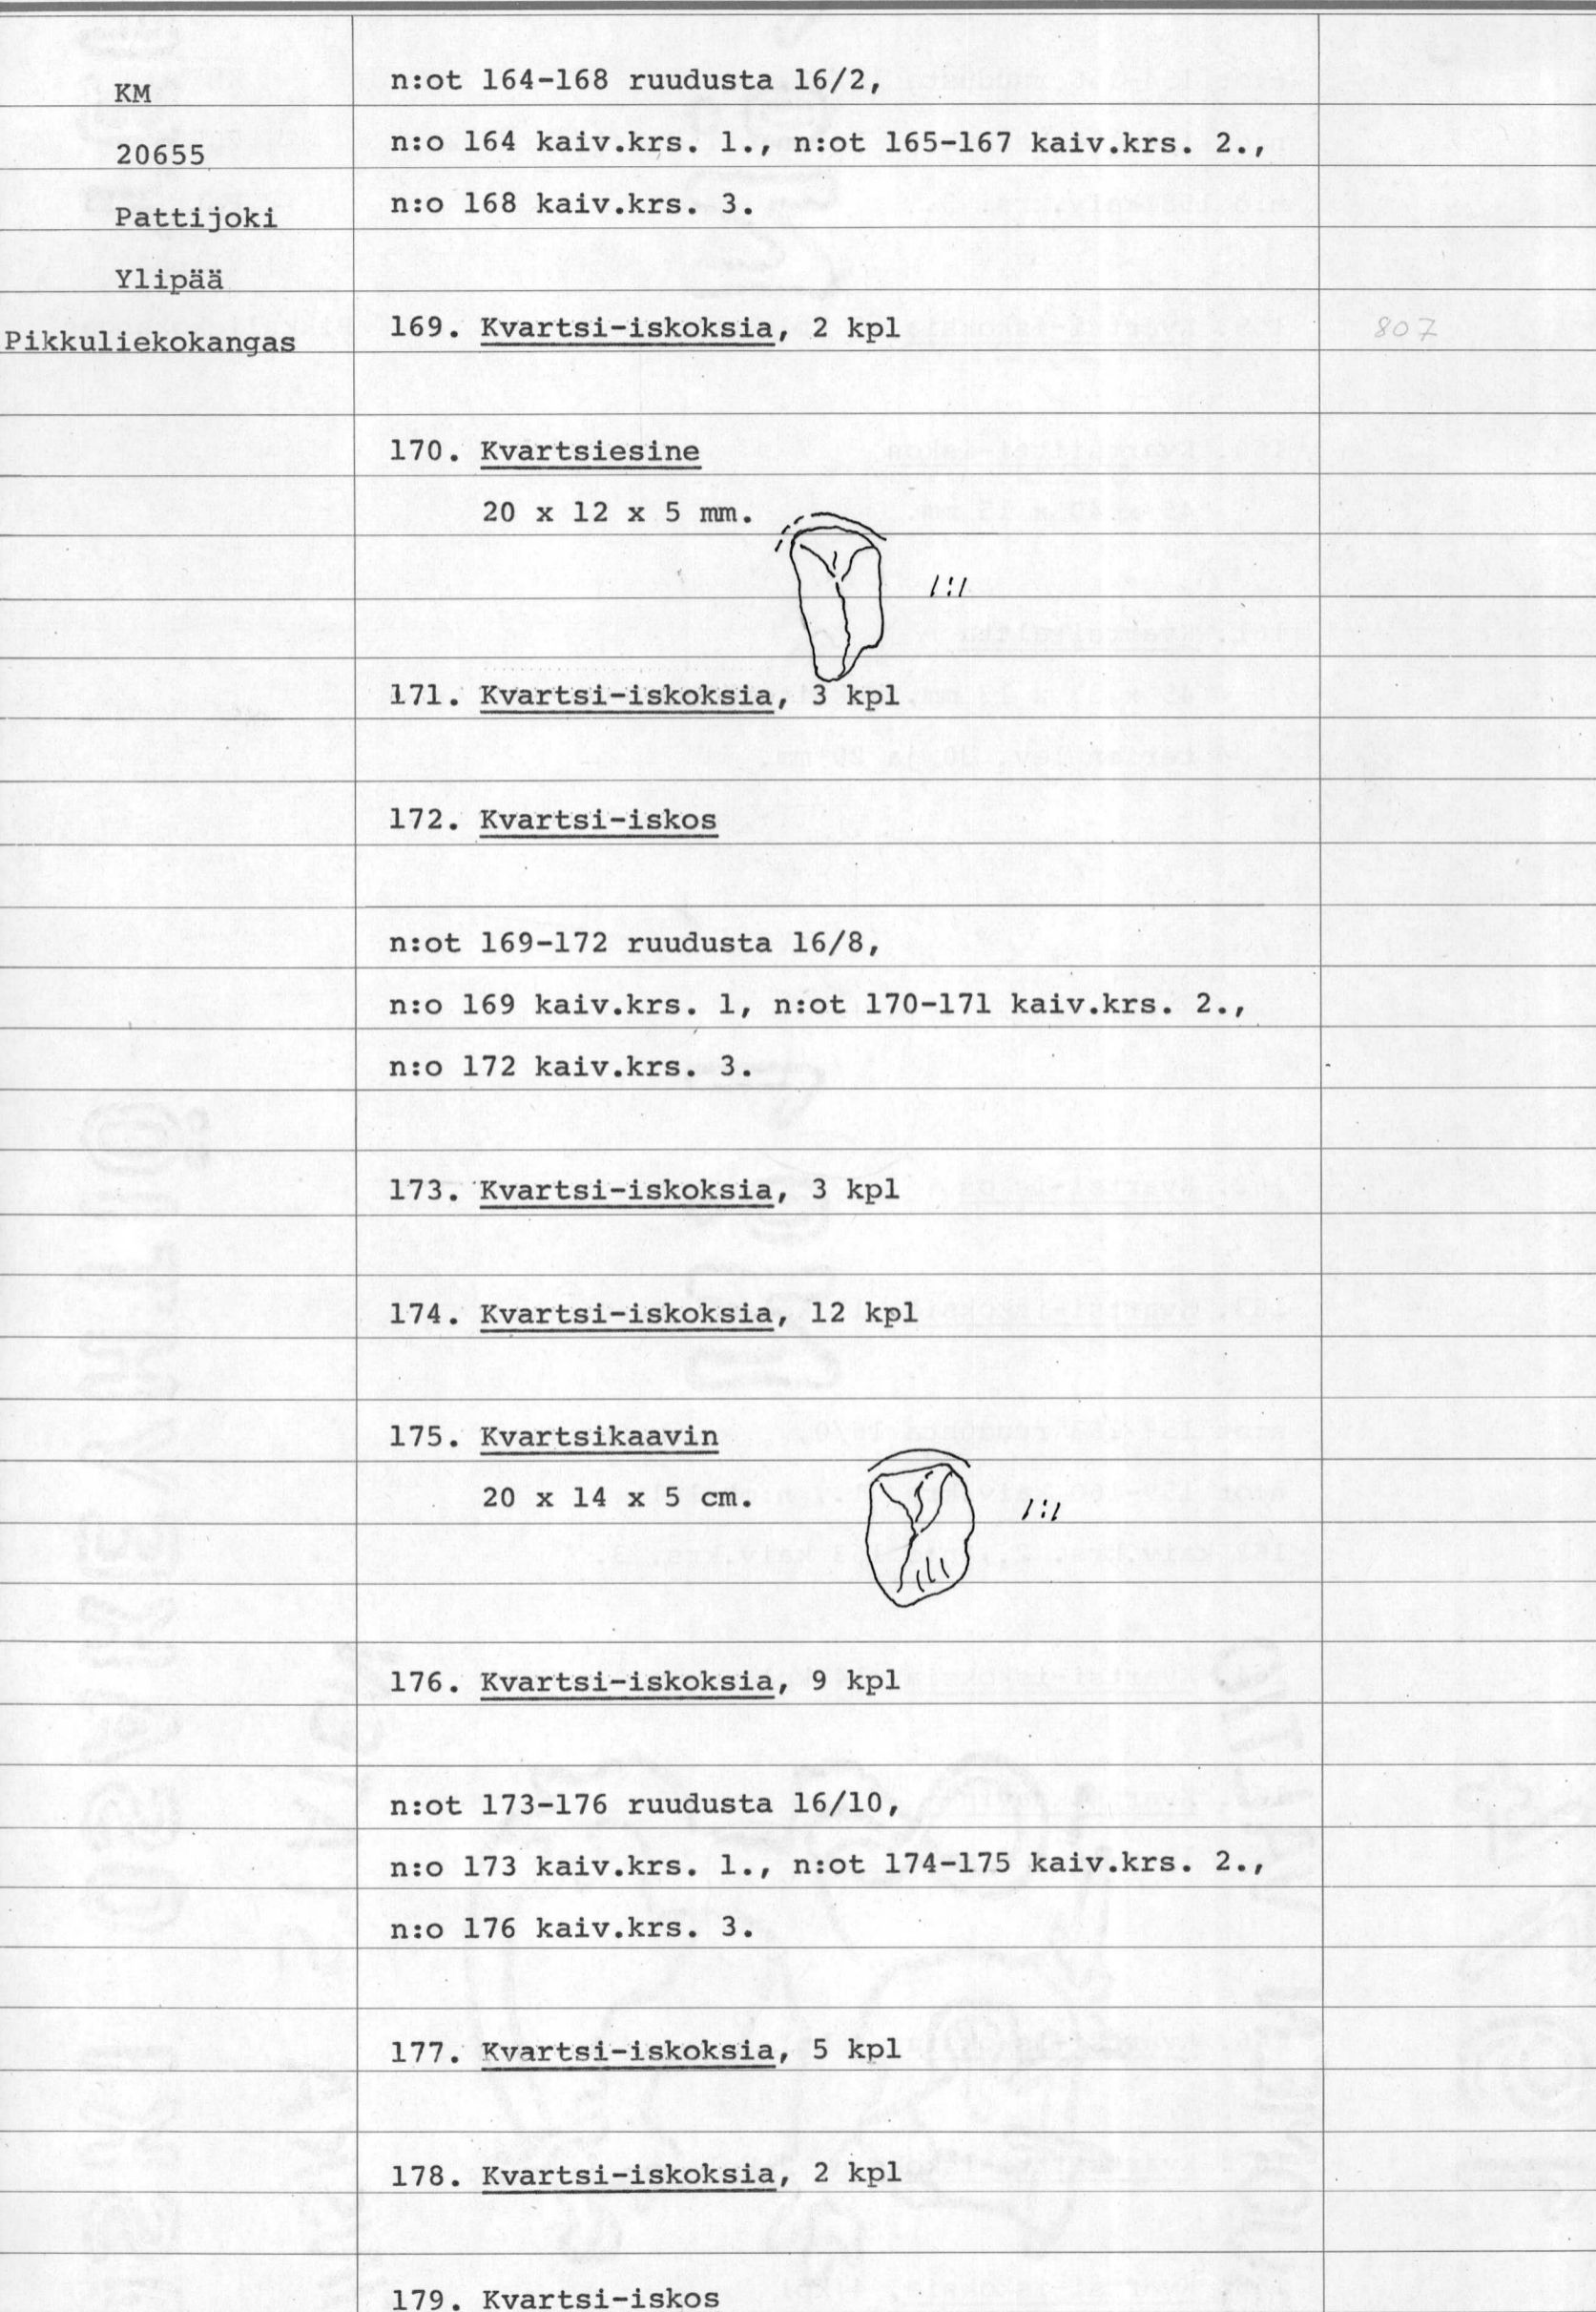 KM
20655
Pattijoki
Ylipää
Pikkuliekokangas
n:ot 164-168 ruudusta 16/2,
n:o 164 kaiv.krs. 1., n:ot 165-167 kaiv.krs. 2.,
n:o 168 kaiv.krs. 3.
169. Kvartsi-iskoksia, 2 kpl
807
170. Kvartsiesine
20 x 12 x 5 mm.
1:1
171. Kvartsi-iskoksia, 3 kpl
172. Kvartsi-iskos
n:ot 169-172 ruudusta 16/8,
n:o 169 kaiv.krs. 1, n:ot 170-171 kaiv.krs. 2.,
n:o 172 kaiv.krs. 3.
173. Kvartsi-iskoksia, 3 kpl
174. Kvartsi-iskoksia, 12 kpl
175. Kvartsikaavin
20 x 14 x 5 cm.
1:1
176. Kvartsi-iskoksia, 9 kpl
n:ot 173-176 ruudusta 16/10,
n:o 173 kaiv.krs. 1., n:ot 174-175 kaiv.krs. 2.,
n:o 176 kaiv.krs. 3.
177. Kvartsi-iskoksia, 5 kpl
178. Kvartsi-iskoksia, 2 kpl
179. Kvartsi-iskos